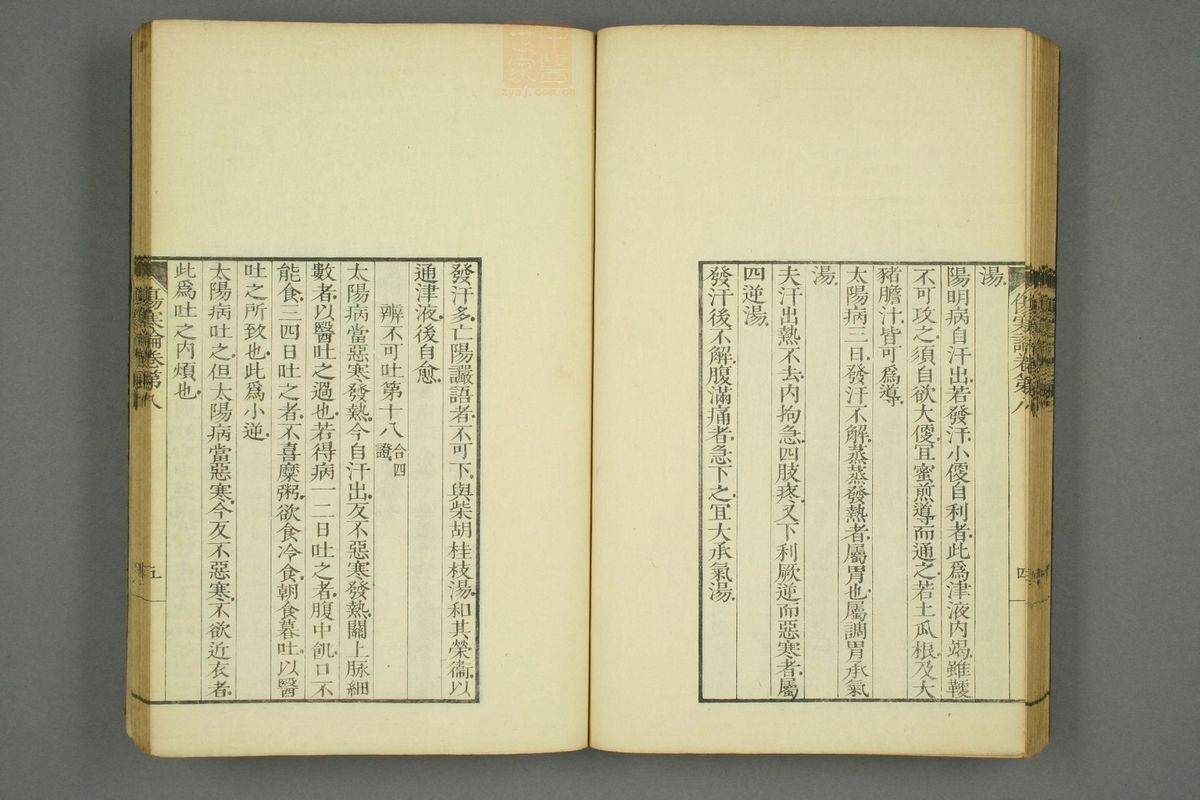 湯
陽明病自汗出若發汗小便自利者此爲津液內竭雖鞕
不可攻之須自欲大便宜蜜煎導而通之若土瓜根及大
豬膽汁皆可爲導
太陽病三日發汗不解蒸蒸發熱者屬胃也屬調胃承氣
湯
夫汗出熱不去內拘急四肢疼又下利厥逆而惡寒者屬
四逆湯
發汗後不解腹滿痛者急下之宜大承氣湯
傷寒論卷第八
四
發汗多亡陽讝語者不可下與柴胡桂枝湯和其榮衞以
通津液後自愈
辨不可吐第十八 合四證
太陽病當惡寒發熱今自汗出反不惡寒發熱關上脉細
數者以醫吐之過也若得病一二日吐之者腹中飢口不
能食三四日吐之者不喜糜粥欲食冷食朝食暮吐以醫
吐之所致也此爲小逆
太陽病吐之但太陽病當惡寒今反不惡寒不欲近衣者
此爲吐之內煩也
傷寒論卷第八
五
中醫世家
zysj.com.cn